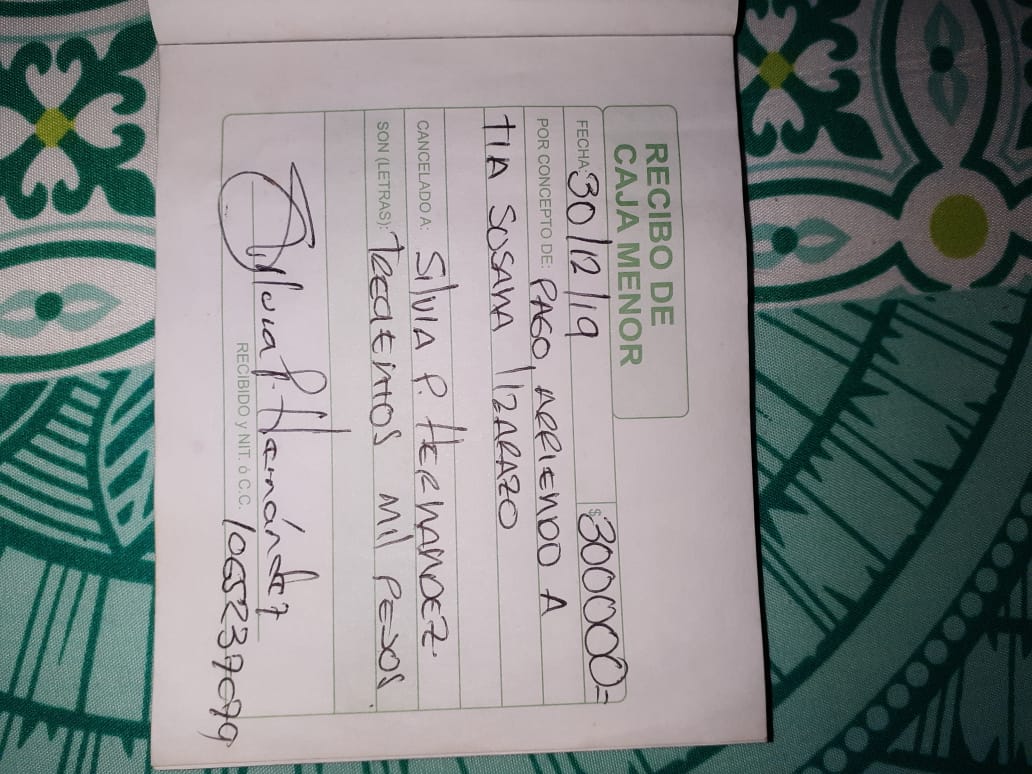 RECIBO DE
CAJA MENOR
FECHA: 30/12/19 $ 300000=
POR CONCEPTO DE: PAGO, ARRIENDO A
TIA SUSANA LIZARAZO
CANCELADO A: SILVIA P. HERNANDEZ.
SON (LETRAS): TRECIENTOS MIL PESOS
Silvia P. Hernández
RECIBIDO y NIT. ó C.C. 1065237079